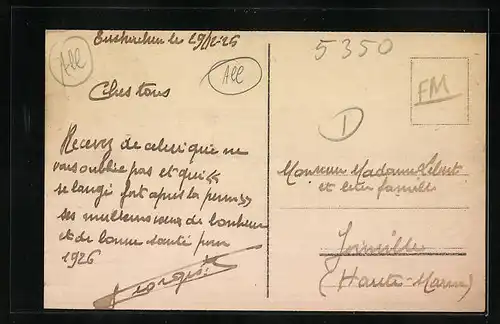 Euskirchen le 29/12-25
All
All
Chers tous
Recevez de celui que ne
vous oublie pas et qui
se langui fort après la permis
ses meilleurs vœux de bonheur
et de bonne santé pour
1926
Georges
5350
FM
D
Monsieur Madame
et leur famille
Joinville
(Haute-Marne)